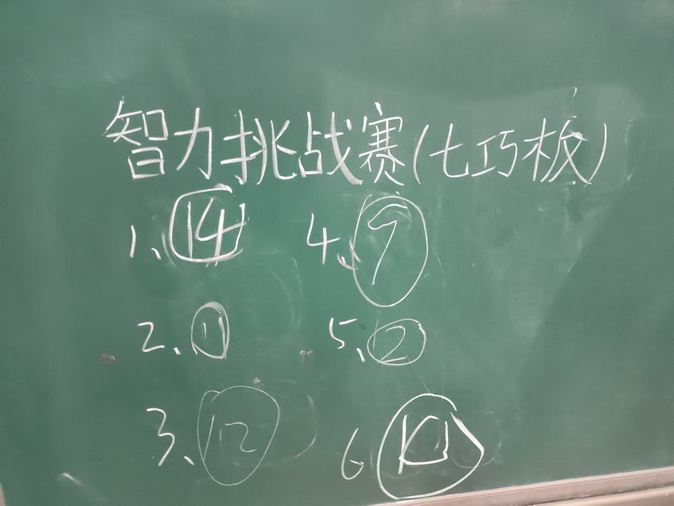 智力挑战赛(七巧板)
1、14 4、9
2、11 5、12
3、12 6